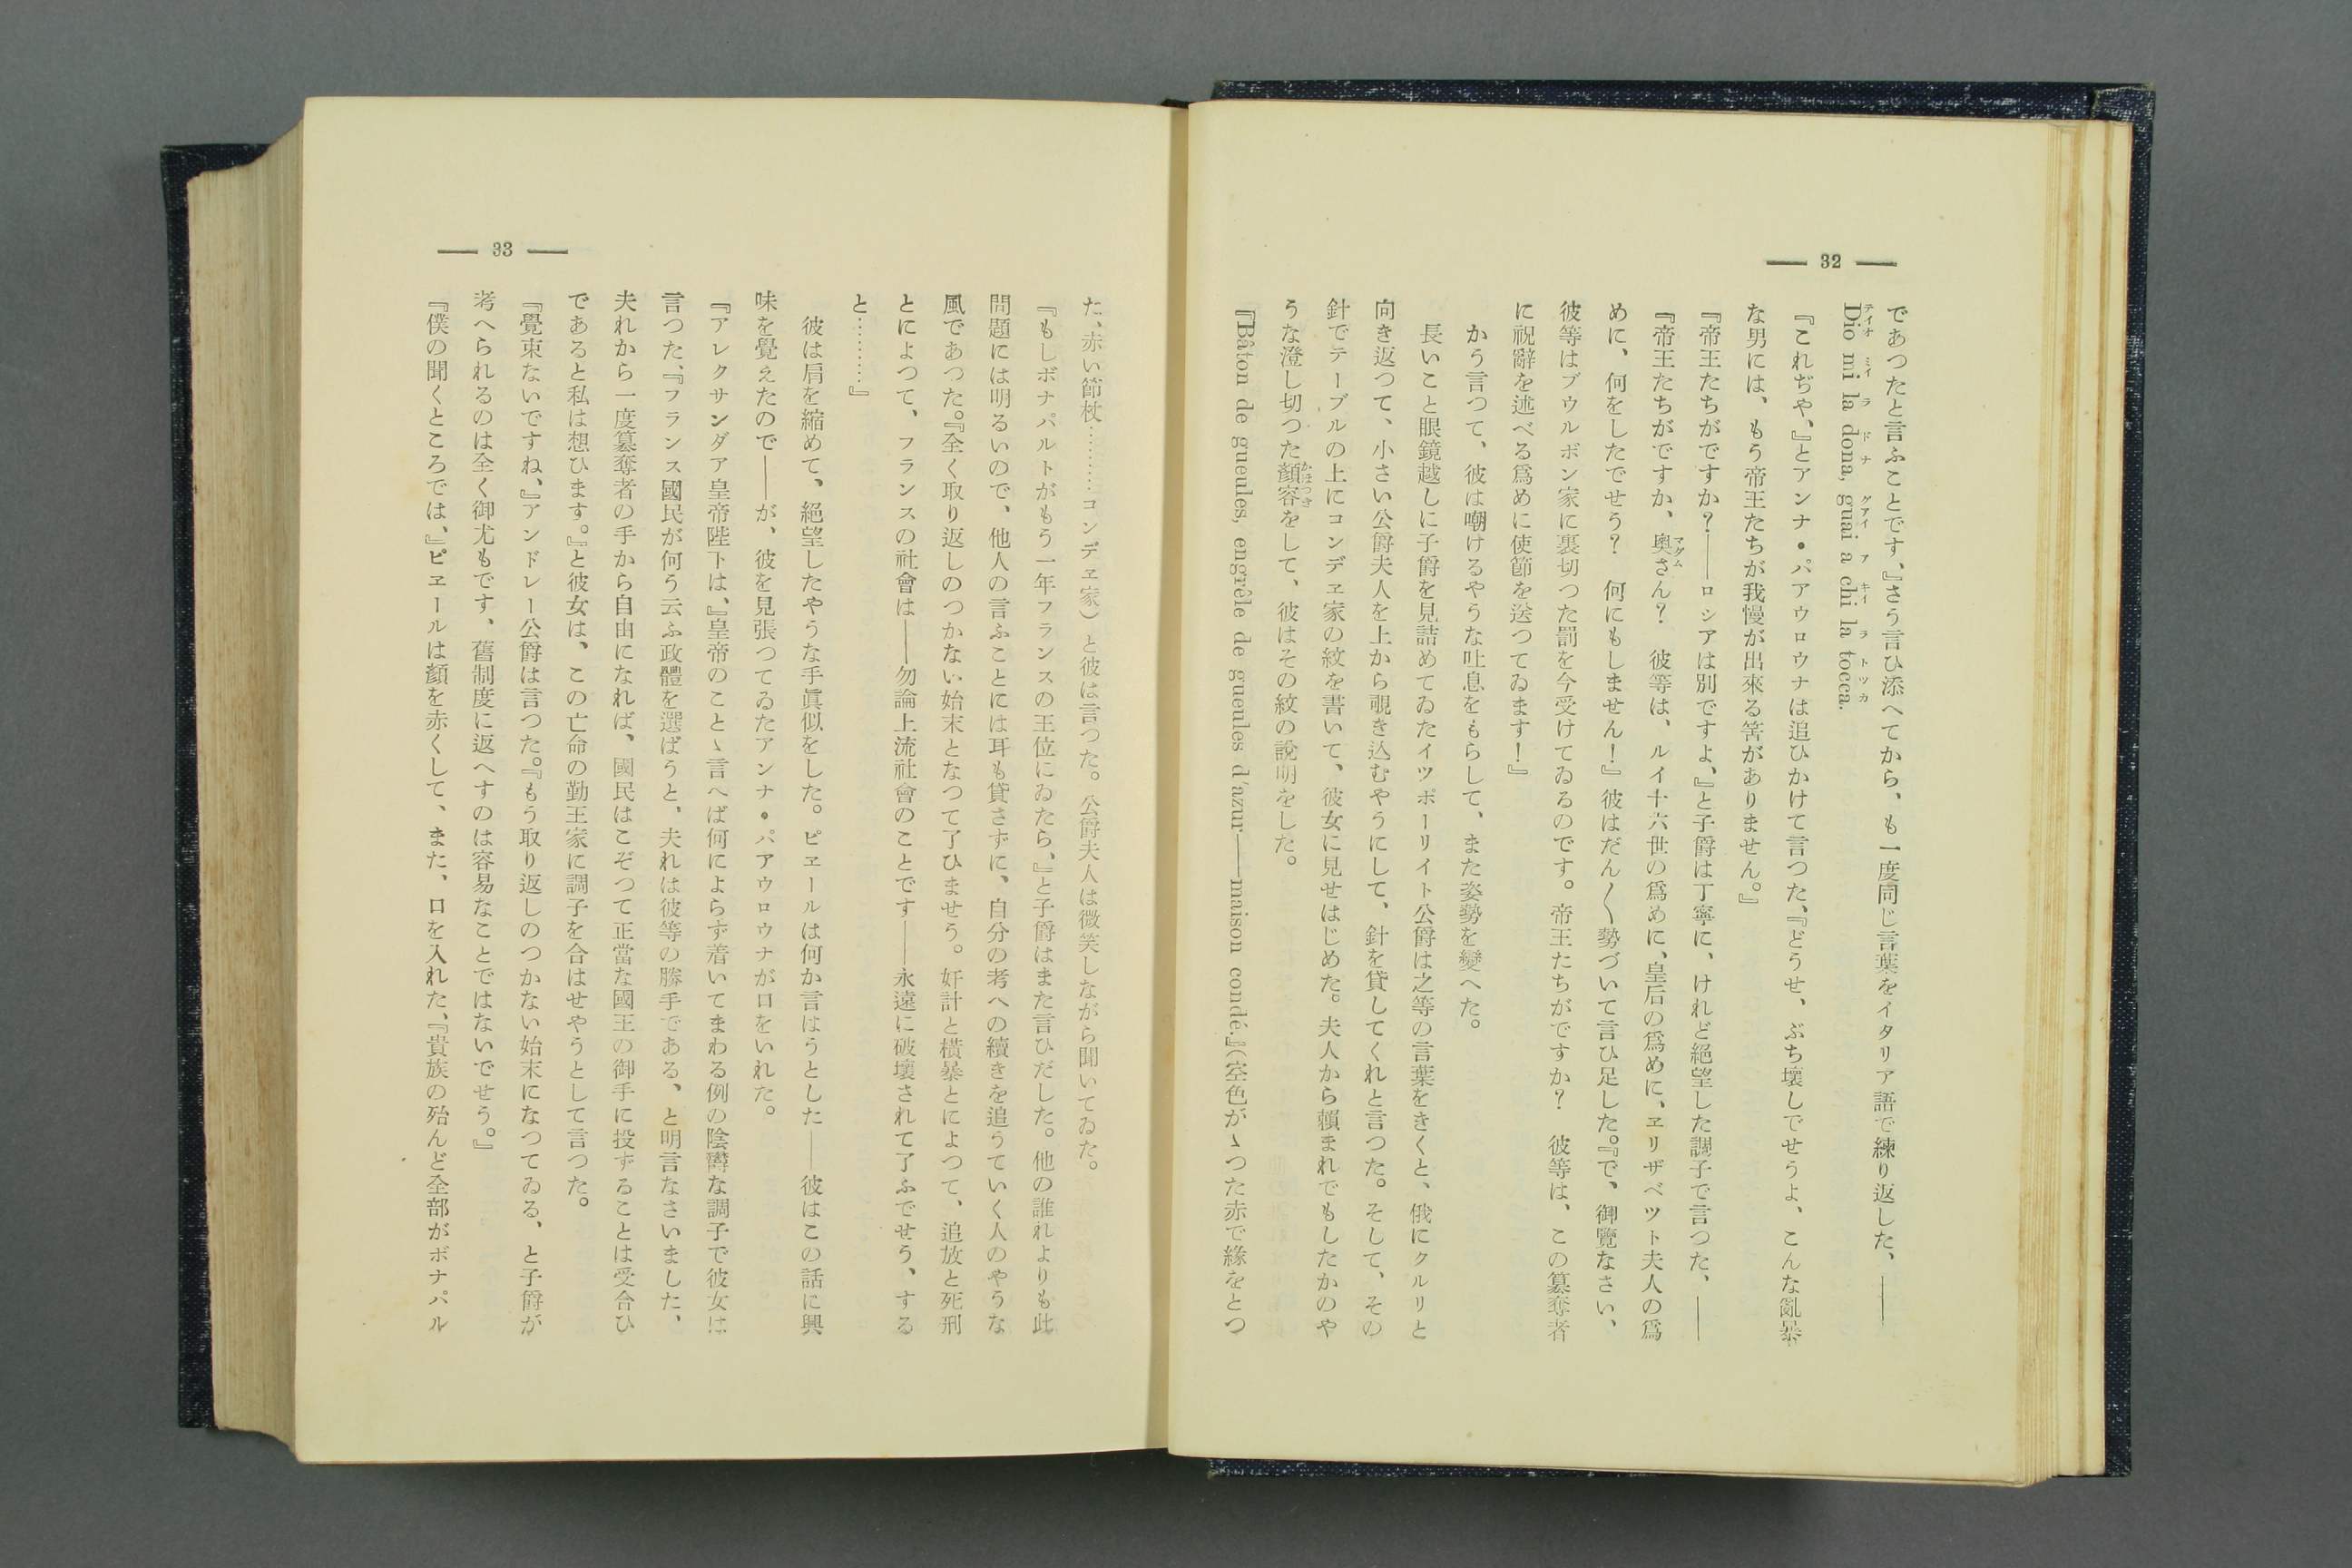 — 32 —
であつたと言ふことです、』さう言ひ添へてから、も一度同じ言葉をイタリア語で練り返した、――
Dio mi la dona, guai a chi la tocca.
『これぢや、』とアンナ・パアウロウナは追ひかけて言つた、『どうせ、ぶち壞しでせうよ、こんな亂暴
な男には、もう帝王たちが我慢が出來る筈がありません。』
『帝王たちがですか？――ロシアは別ですよ、』と子爵は丁寧に、けれど絕望した調子で言つた、――
『帝王たちがですか、奧さん？　彼等は、ルイ十六世の爲めに、皇后の爲めに、ヱリザベツト夫人の爲
めに、何をしたでせう？　何にもしません！』彼はだん〱勢づいて言ひ足した。『で、御覽なさい、
彼等はブウルボン家に裏切つた罰を今受けてゐるのです。帝王たちがですか？　彼等は、この簒奪者
に祝辭を述べる爲めに使節を送つてゐます！』
かう言つて、彼は嘲けるやうな吐息をもらして、また姿勢を變へた。
長いこと眼鏡越しに子爵を見詰めてゐたイツポーリイト公爵は之等の言葉をきくと、俄にクルリと
向き返つて、小さい公爵夫人を上から覗き込むやうにして、針を貸してくれと言つた。そして、その
針でテーブルの上にコンデヱ家の紋を書いて、彼女に見せはじめた。夫人から賴まれでもしたかのや
うな澄し切つた顏容をして、彼はその紋の說明をした。
『Bâton de gueules, engrêle de gueules d'azur――maison condé.』（空色がゝつた赤で緣をとつ
— 33 —
た、赤い節杖………コンデヱ家）と彼は言つた。公爵夫人は微笑しながら聞いてゐた。
『もしボナパルトがもう一年フランスの王位にゐたら、』と子爵はまた言ひだした。他の誰れよりも此
問題には明るいので、他人の言ふことには耳も貸さずに、自分の考への續きを追うていく人のやうな
風であつた。『全く取り返しのつかない始末となつて了ひませう。奸計と橫暴とによつて、追放と死刑
とによつて、フランスの社會は――勿論上流社會のことです――永遠に破壞されて了ふでせう、する
と………』
彼は肩を縮めて、絕望したやうな手眞似をした。ピヱールは何か言はうとした――彼はこの話に興
味を覺えたので――が、彼を見張つてゐたアンナ・パアウロウナが口をいれた。
『アレクサンダア皇帝陛下は、』皇帝のことゝ言へば何によらず着いてまわる例の陰欝な調子で彼女は
言つた、『フランス國民が何う云ふ政體を選ばうと、夫れは彼等の勝手である、と明言なさいました、
夫れから一度簒奪者の手から自由になれば、國民はこぞつて正當な國王の御手に投ずることは受合ひ
であると私は想ひます。』と彼女は、この亡命の勤王家に調子を合はせやうとして言つた。
『覺束ないですね、』アンドレー公爵は言つた。『もう取り返しのつかない始末になつてゐる、と子爵が
考へられるのは全く御尤もです、舊制度に返へすのは容易なことではないでせう。』
『僕の聞くところでは、』ピヱールは顏を赤くして、また、口を入れた、『貴族の殆んど全部がボナパル